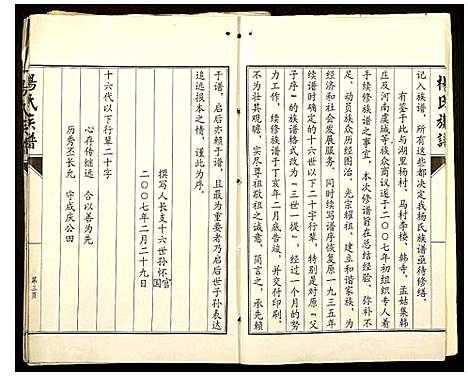 楊氏族譜
记入族谱，所有这些都决定我杨氏族谱亟待修缮。
有鉴于此与湖里杨村、马村李楼、韩寺、孟姑集韩
庄及河南虞城等族众商议遂于二00七年初组织专人着
手续修族谱之事宜，本次修谱旨在总结经验、弥补不
足、动员族众历经图治、光宗耀祖、建立和谐家族，为
经济和社会发展服务，同时续写谱序恢复原一九三五年
续谱时确定的十六世以下二十字行辈，特别是对原“父
子序”的族谱格式更改为“三世一提”。经过一个月的努
力工作，续修族谱于丁亥年二月底告竣，并交付印刷。
不为壮其观瞻，实尽尊祖敬祖之诚意，简言之，承先赖
于谱，启后亦赖于谱，且最为重要者乃启后世子孙表达
追远报本之情，谨此为序。
撰写人长支十六世孙怀官
国
二00七年二月二十九日
十六代以下行辈二十字
心存传继远 合以善为先
历秀云长允 守成庆公田
楊氏族譜
第三页